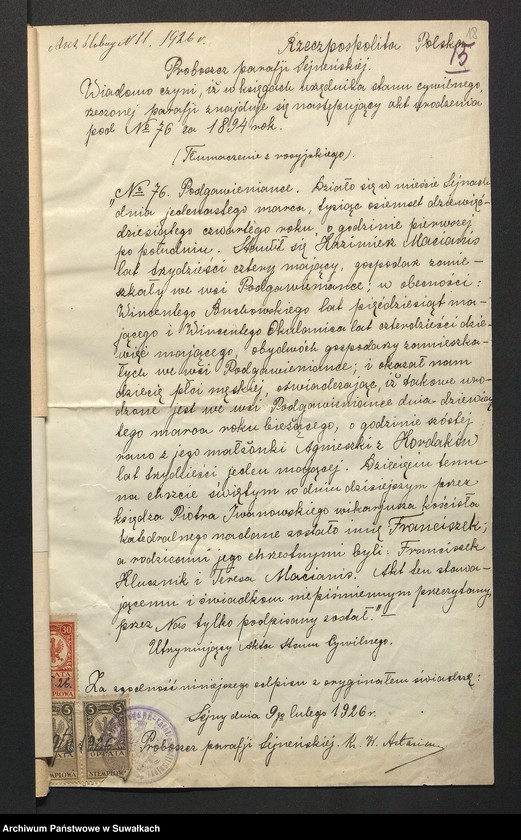 Akt ślubny N 11. 1926 r.
13
Rzeczpospolita Polska
15
Proboszcz parafji Sejneńskiej.
Wiadomo czyni, iż w księgach urzędnika stanu cywilnego,
rzeczonej parafji znajduje się następujący akt urodzenia
pod № 76 za 1894 rok.
(Tłumaczenie z rosyjskiego).
"№ 76. Podgawieniance. Działo się w mieście Sejnach
dnia jedenastego marca, tysiąc osiemset dziewięć-
dziesiątego czwartego roku, o godzinie pierwszej
po południu. Stawił się Kazimierz Macianis
lat trzydzieści cztery mający, gospodarz zamie-
szkały we wsi Podgawieniance; w obecności:
Wincentego Buchowskiego lat pięćdziesiąt ma-
jącego i Wincentego lat czterdzieści dzie-
więć mającego, obydwóch gospodarzy zamieszka-
łych we wsi Podgawieniance; i okazał nam
dziecię płci męskiej, oświadczając, iż takowe uro-
dzone jest we wsi Podgawieniance dnia dziewią-
tego marca roku bieżącego, o godzinie szóstej
rano z jego małżonki Agnieszki z Hordaków
lat trzydzieści jeden mającej. Dziecięciu temu
na chrzcie świętym w dniu dzisiejszym przez
księdza Piotra Iwanowskiego wikarjusza kościoła
katedralnego nadane zostało imię Franciszek;
a rodzicami jego chrzestnymi byli: Franciszek
Klucznik i Teresa Macianis. Akt ten stawa-
jącemu i świadkom niepiśmiennym przeczytany,
przez Nas tylko podpisany został."
Utrzymujący Akta Stanu Cywilnego.
Za zgodność niniejszego odpisu z oryginałem świadczę:
Sejny dnia 9go lutego 1926 r.
Proboszcz parafji Sejneńskiej. X. W.
30
26.
5 5
OPŁATA
STEMPLOWA
1926
Archiwum Państwowe w Suwałkach